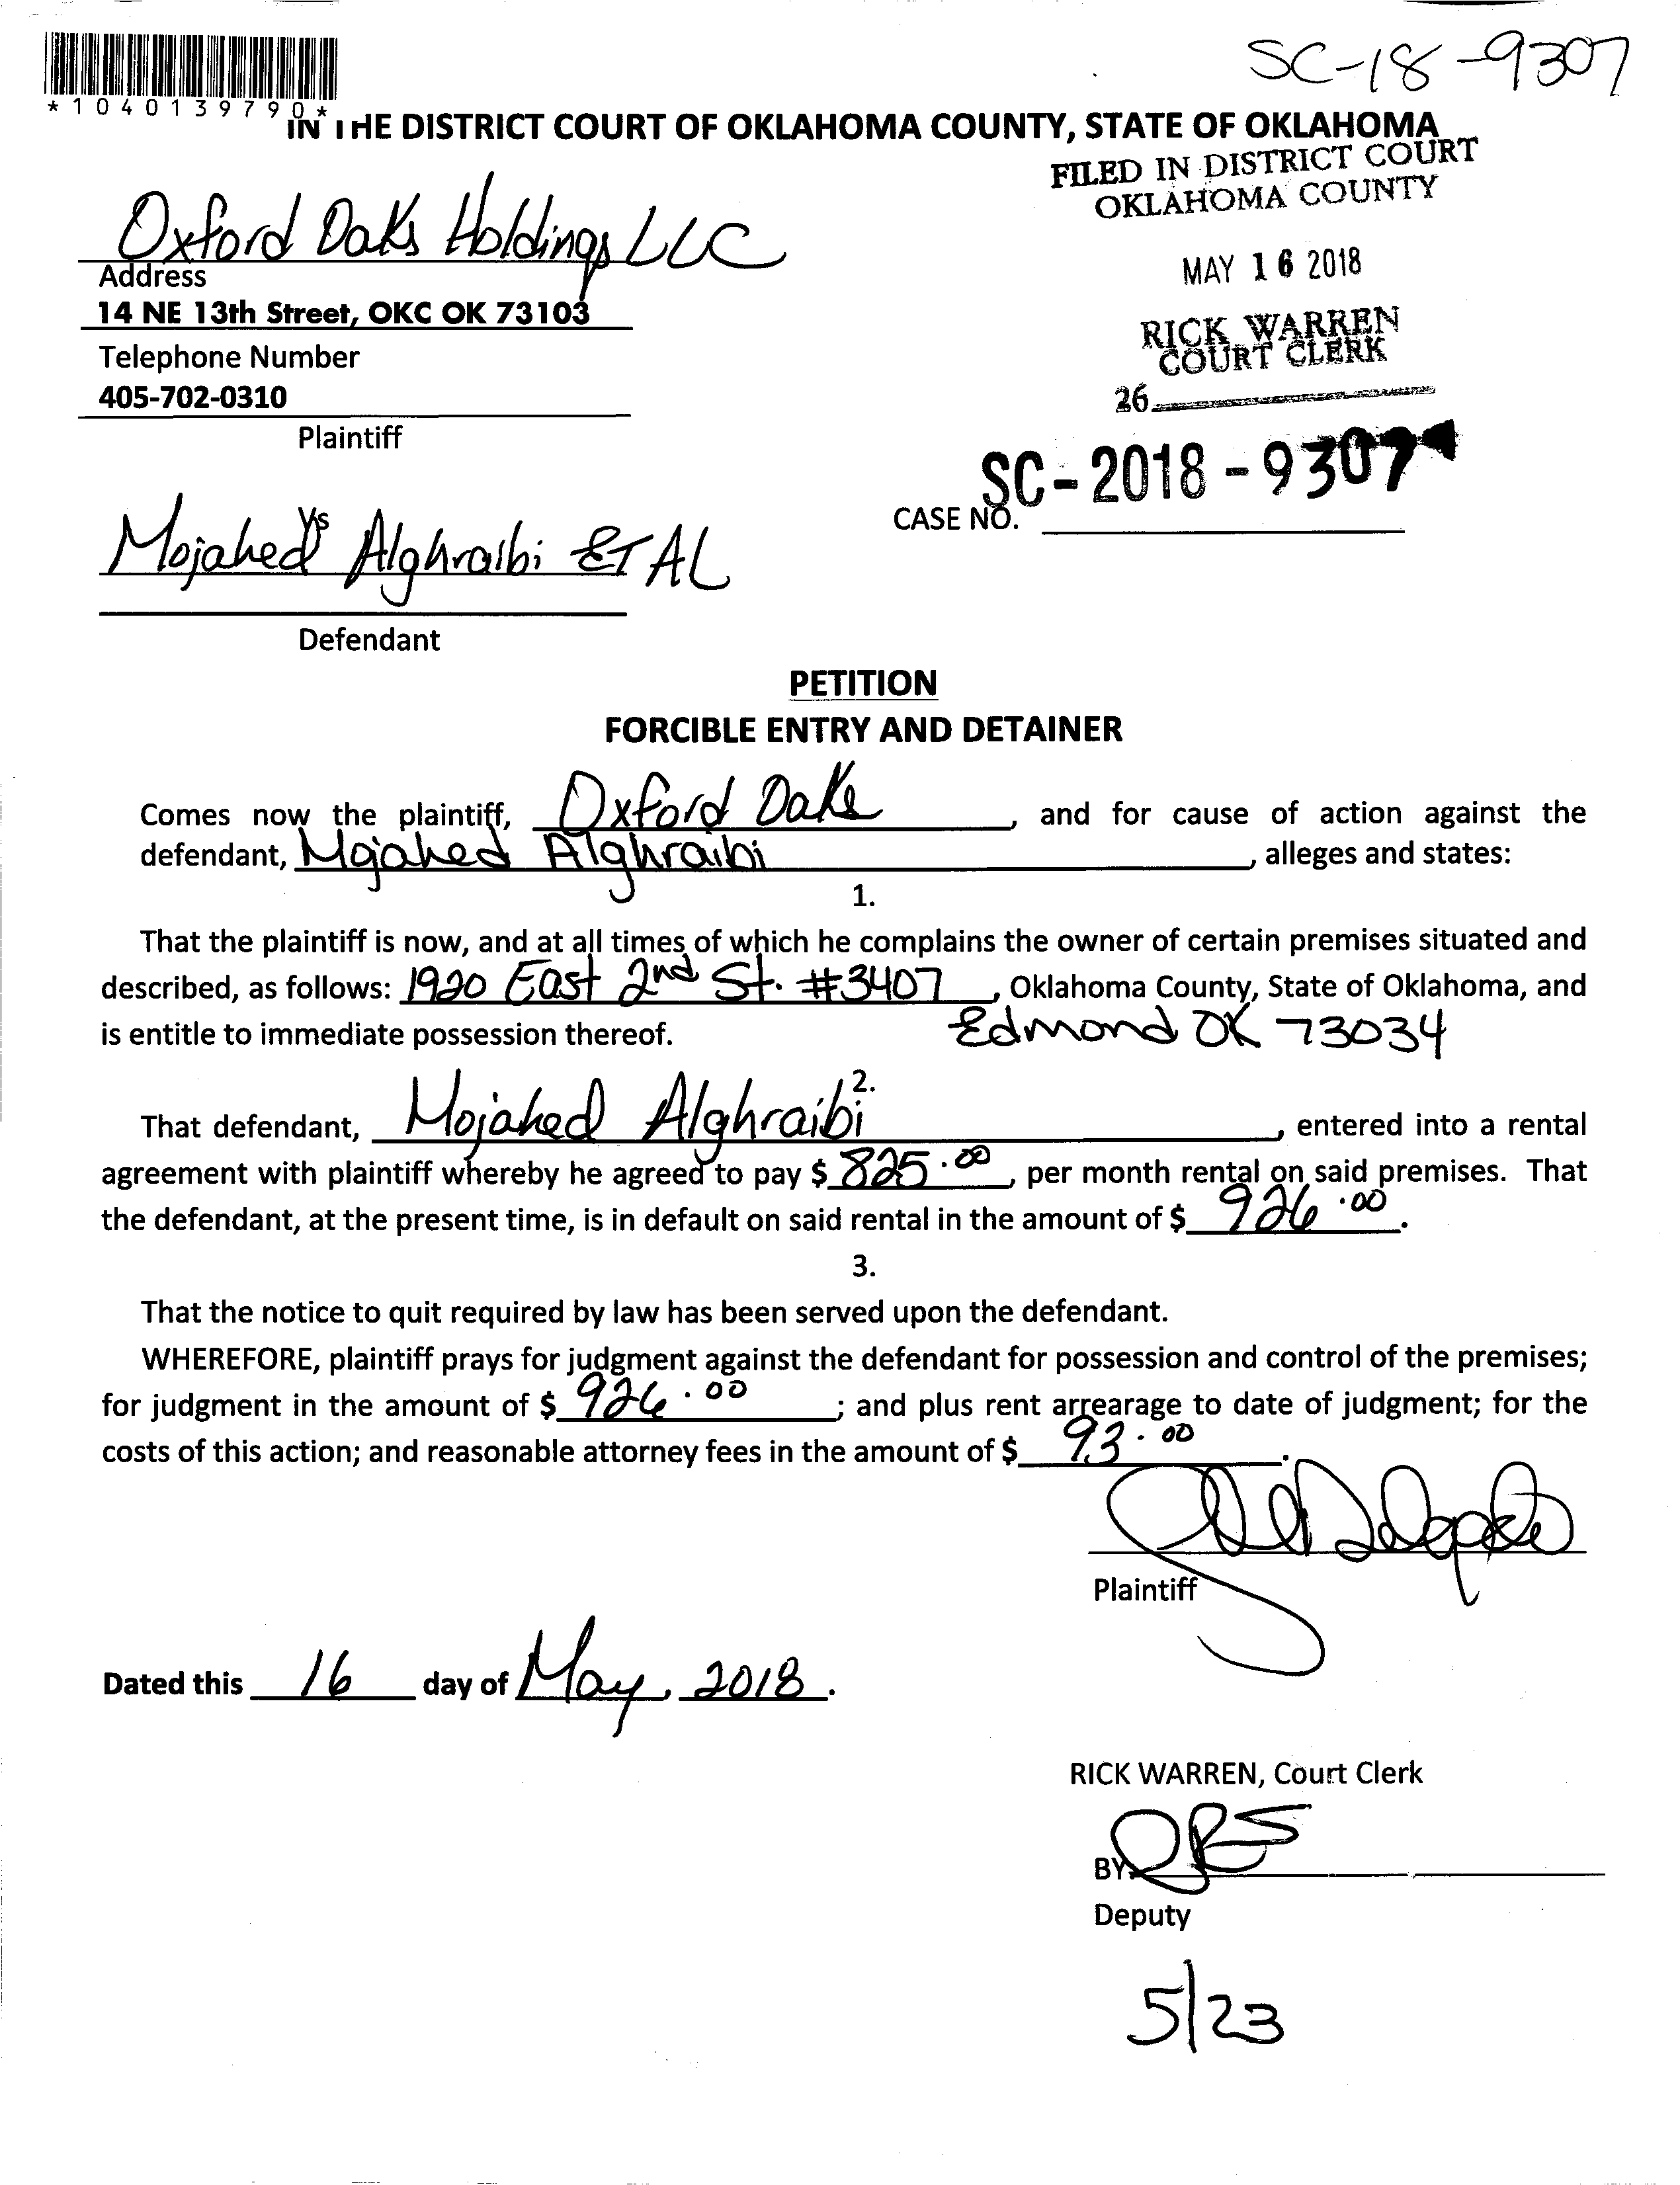 SC-18-9307
*1040139790*
IN THE DISTRICT COURT OF OKLAHOMA COUNTY, STATE OF OKLAHOMA
FILED IN DISTRICT COURT
OKLAHOMA COUNTY
MAY 16 2018
RICK WARREN
COURT CLERK
26
Oxford Oaks Holdings LLC
Address
14 NE 13th Street, OKC OK 73103
Telephone Number
405-702-0310
Plaintiff
SC-2018-9307
CASE NO.
Vs
Mojahed Alghraibi ET AL
Defendant
PETITION
FORCIBLE ENTRY AND DETAINER
Comes now the plaintiff, Oxford Oaks, and for cause of action against the
defendant, Mojahed Alghraibi, alleges and states:
1.
That the plaintiff is now, and at all times of which he complains the owner of certain premises situated and
described, as follows: 1920 East 2nd St. #3407, Oklahoma County, State of Oklahoma, and
is entitle to immediate possession thereof. Edmond OK 73034
2.
That defendant, Mojahed Alghraibi, entered into a rental
agreement with plaintiff whereby he agreed to pay $ 825.00, per month rental on said premises. That
the defendant, at the present time, is in default on said rental in the amount of $ 926.00.
3.
That the notice to quit required by law has been served upon the defendant.
WHEREFORE, plaintiff prays for judgment against the defendant for possession and control of the premises;
for judgment in the amount of $ 926.00; and plus rent arrearage to date of judgment; for the
costs of this action; and reasonable attorney fees in the amount of $ 93.00.
Plaintiff
Dated this 16 day of May, 2018.
RICK WARREN, Court Clerk
BY
Deputy
5/23